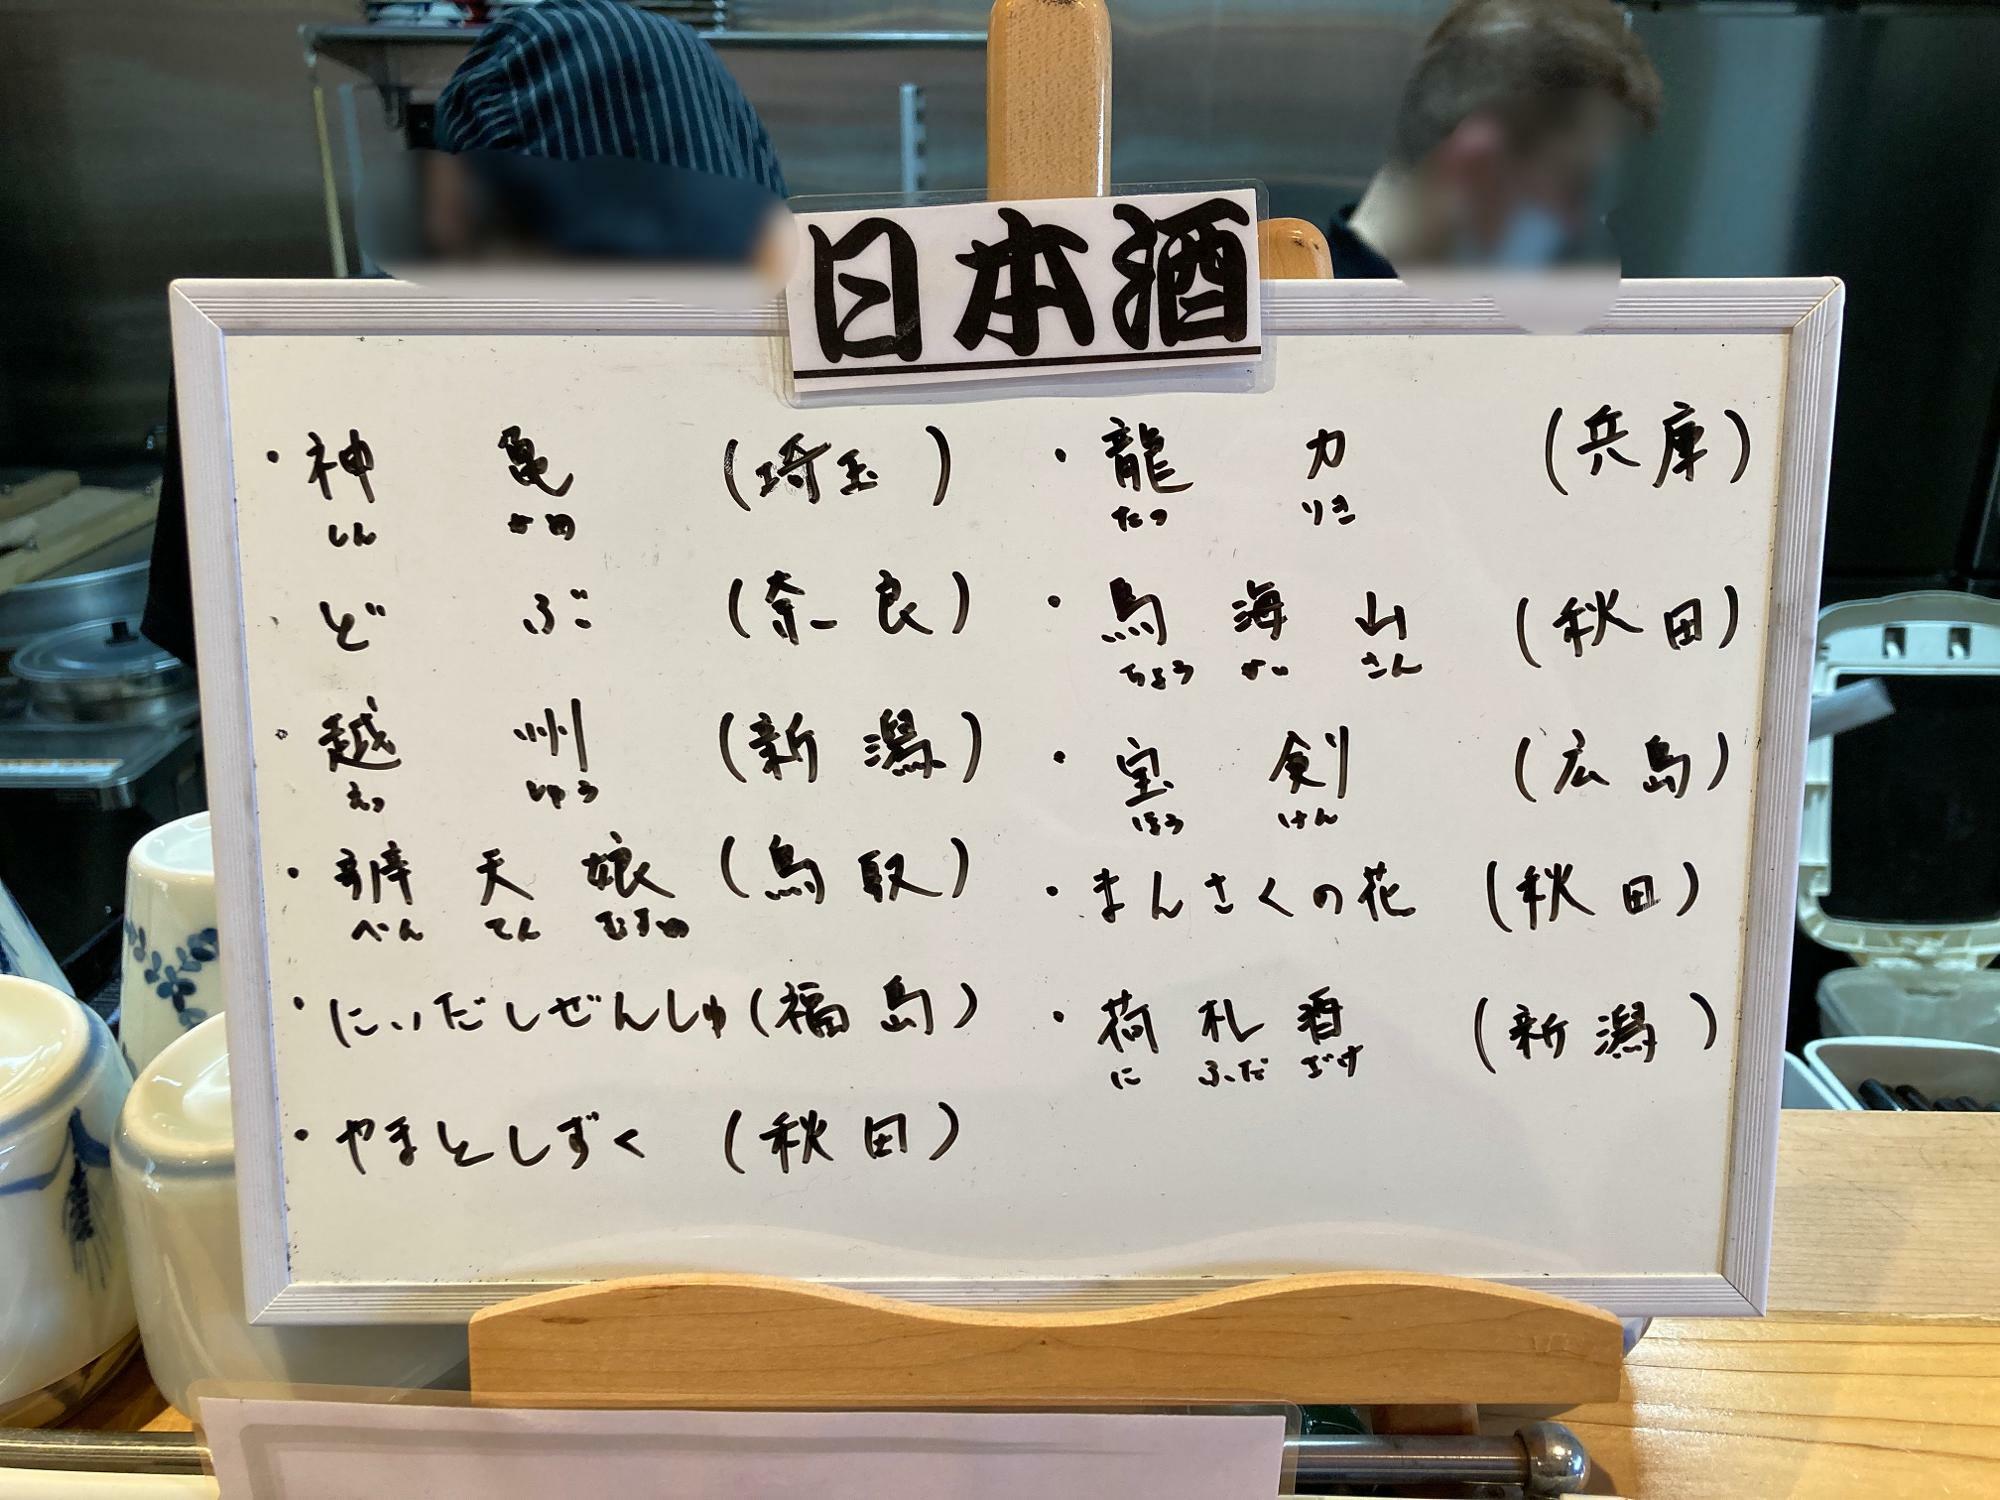 日本酒
・神亀(埼玉)
しんかめ
どぶ(奈良)
・越州(新潟)
えっしゅう
・辨天娘(鳥取)
べんてんむすめ
・にいだしぜんしゅ(福島)
・やまとしずく(秋田)
・龍力(兵庫)
たつりき
・鳥海山(秋田)
ちょうかいさん
・宝剣(広島)
ほうけん
・まんさくの花(秋田)
・荷札酒(新潟)
にふだざけ